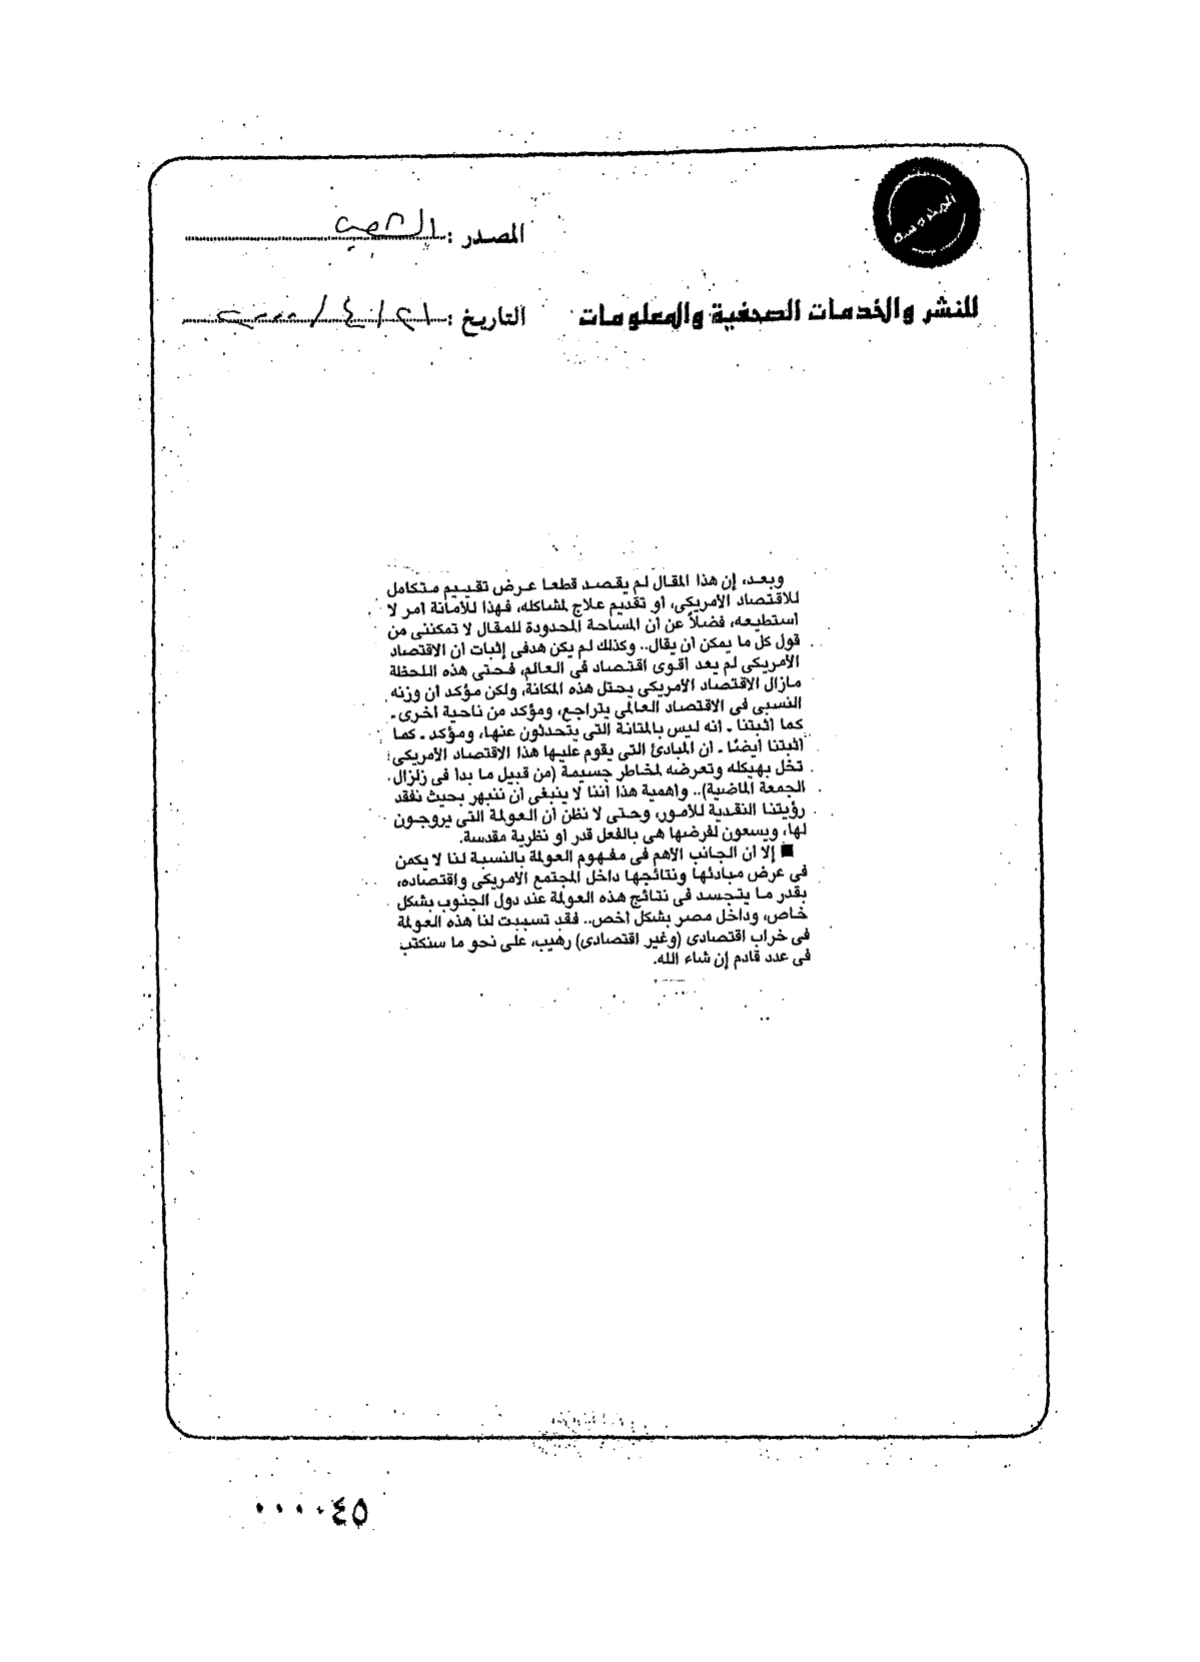 المحروسة
المصدر : الشعب
للنشر والخدمات الصحفية والمعلومات
التاريخ : ٢١ / ٤ / ٢٠٠٠
وبعد، إن هذا المقال لم يقصد قطعا عرض تقييم متكامل
للاقتصاد الأمريكى، أو تقديم علاج لمشاكله، فهذا للأمانة أمر لا
أستطيعه، فضلاً عن أن المساحة المحدودة للمقال لا تمكننى من
قول كل ما يمكن أن يقال.. وكذلك لم يكن هدفى إثبات أن الاقتصاد
الأمريكى لم يعد أقوى اقتصاد فى العالم، فحتى هذه اللحظة
مازال الاقتصاد الأمريكى يحتل هذه المكانة، ولكن مؤكد أن وزنه
النسبى فى الاقتصاد العالمى يتراجع، ومؤكد من ناحية أخرى ـ
كما أثبتنا ـ أنه ليس بالمتانة التى يتحدثون عنها، ومؤكد ـ كما
أثبتنا أيضًا ـ أن المبادئ التى يقوم عليها هذا الاقتصاد الأمريكى
تخل بهيكله وتعرضه لمخاطر جسيمة (من قبيل ما بدأ فى زلزال
الجمعة الماضية).. وأهمية هذا أننا لا ينبغى أن ننبهر بحيث نفقد
رؤيتنا النقدية للأمور، وحتى لا نظن أن العولمة التى يروجون
لها، ويسعون لفرضها هى بالفعل قدر أو نظرية مقدسة.
■ إلا أن الجانب الأهم فى مفهوم العولمة بالنسبة لنا لا يكمن
فى عرض مبادئها ونتائجها داخل المجتمع الأمريكى واقتصاده،
بقدر ما يتجسد فى نتائج هذه العولمة عند دول الجنوب بشكل
خاص، وداخل مصر بشكل أخص.. فقد تسببت لنا هذه العولمة
فى خراب اقتصادى (وغير اقتصادى) رهيب، على نحو ما سنكتب
فى عدد قادم إن شاء الله.
٠٠٠٠٤٥